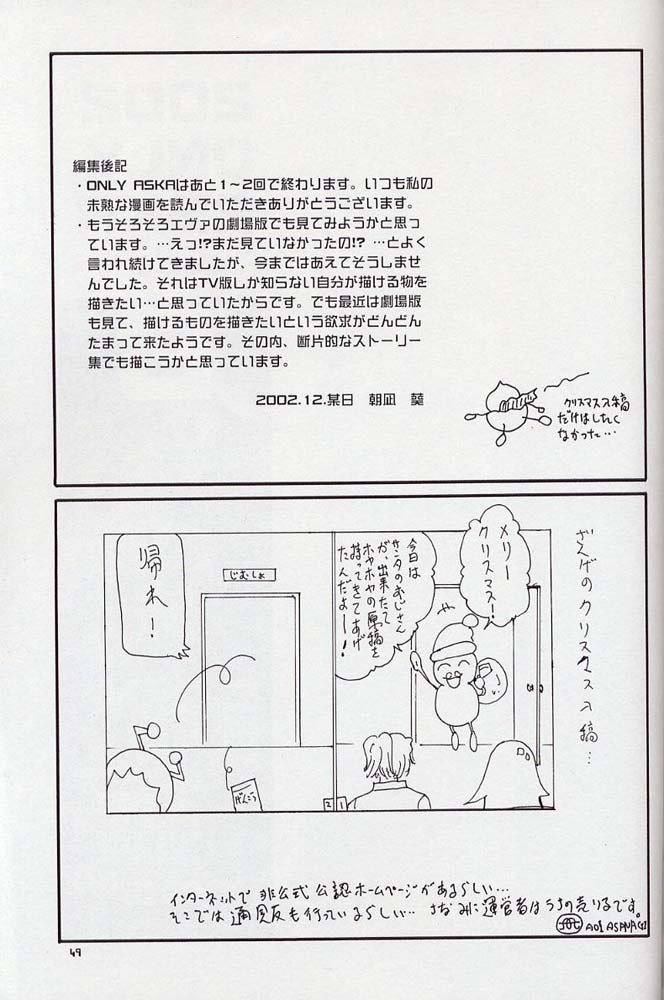 編集後記
・ONLY ASKAはあと1～2回で終わります。いつも私の
未熟な漫画を読んでいただきありがとうございます。
・もうそろそろエヴァの劇場版でも見てみようかと思っ
ています。…えっ!?まだ見ていなかったの!? …とよく
言われ続けてきましたが、今まではあえてそうしませ
んでした。それはTV版しか知らない自分が描ける物を
描きたい…と思っていたからです。でも最近は劇場版
も見て、描けるものを描きたいという欲求がどんどん
たまって来たようです。その内、断片的なストーリー
集でも描こうかと思っています。
2002.12.某日 朝凪 葵
クリスマス入稿
だけはしたく
なかった…
ざえげのクリスマス入稿…
メリー
クリスマス!
今日は
サンタのおじさん
が、出来たて
ホヤホヤの原稿を
持ってきてあげ
たんだよー!
1
じむしょ
帰れ!
げんこう
2
インターネットで 非公式 公認 ホームページがあるらしい…
そこでは通販も行っているらしい… ちなみに運営者はうちの売り子です。
49